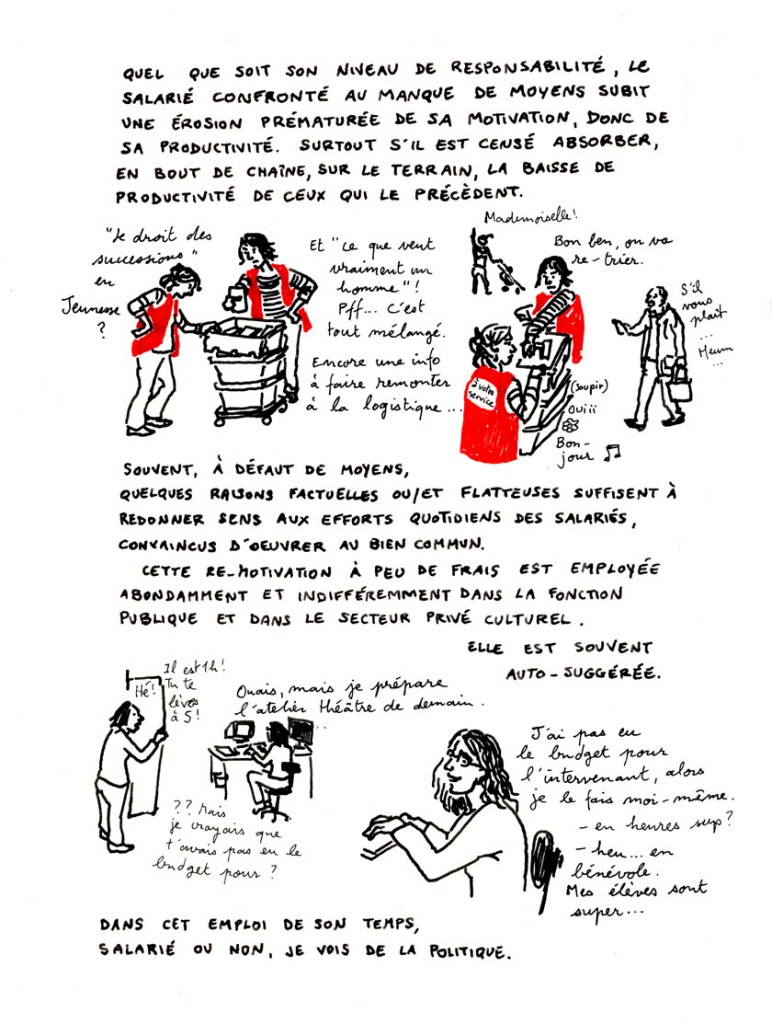 QUEL QUE SOIT SON NIVEAU DE RESPONSABILITÉ, LE
SALARIÉ CONFRONTÉ AU MANQUE DE MOYENS SUBIT
UNE ÉROSION PRÉMATURÉE DE SA MOTIVATION, DONC DE
SA PRODUCTIVITÉ. SURTOUT S'IL EST CENSÉ ABSORBER,
EN BOUT DE CHAÎNE, SUR LE TERRAIN, LA BAISSE DE
PRODUCTIVITÉ DE CEUX QUI LE PRÉCÈDENT.
"Le droit des
successions"
en
Jeunesse
?
Et "ce que veut
vraiment un
homme"!
Pff... C'est
tout mélangé.
Encore une info
à faire remonter
à la logistique...
Mademoiselle!
Bon ben, on va
re-trier.
S'il
vous
plait
...
Heum
...
à votre
service
(soupir)
Ouiii
Bon-
jour
SOUVENT, À DÉFAUT DE MOYENS,
QUELQUES RAISONS FACTUELLES OU/ET FLATTEUSES SUFFISENT À
REDONNER SENS AUX EFFORTS QUOTIDIENS DES SALARIÉS,
CONVAINCUS D'OEUVRER AU BIEN COMMUN.
CETTE RE-MOTIVATION À PEU DE FRAIS EST EMPLOYÉE
ABONDAMMENT ET INDIFFÉREMMENT DANS LA FONCTION
PUBLIQUE ET DANS LE SECTEUR PRIVÉ CULTUREL.
ELLE EST SOUVENT
AUTO-SUGGÉRÉE.
Hé!
Il est 1h!
Tu te
lèves
à 5!
Ouais, mais je prépare
l'atelier théâtre de demain...
?? Mais
je croyais que
t'avais pas eu le
budget pour?
J'ai pas eu
le budget pour
l'intervenant, alors
je le fais moi-même.
- en heures sup?
- heu... en
bénévole.
Mes élèves sont
super...
DANS CET EMPLOI DE SON TEMPS,
SALARIÉ OU NON, JE VOIS DE LA POLITIQUE.